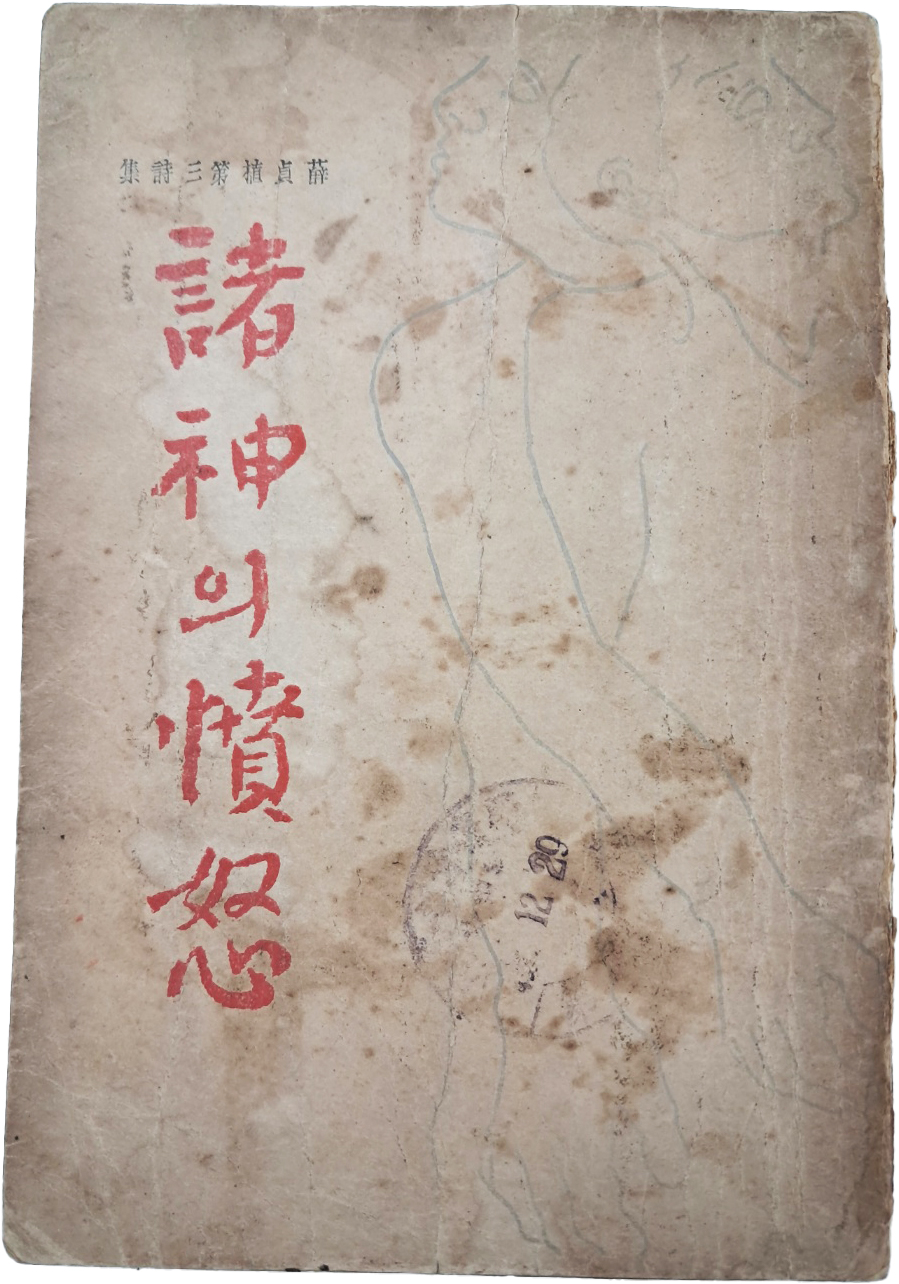 薛貞植第三詩集
諸神의憤怒
12. 29